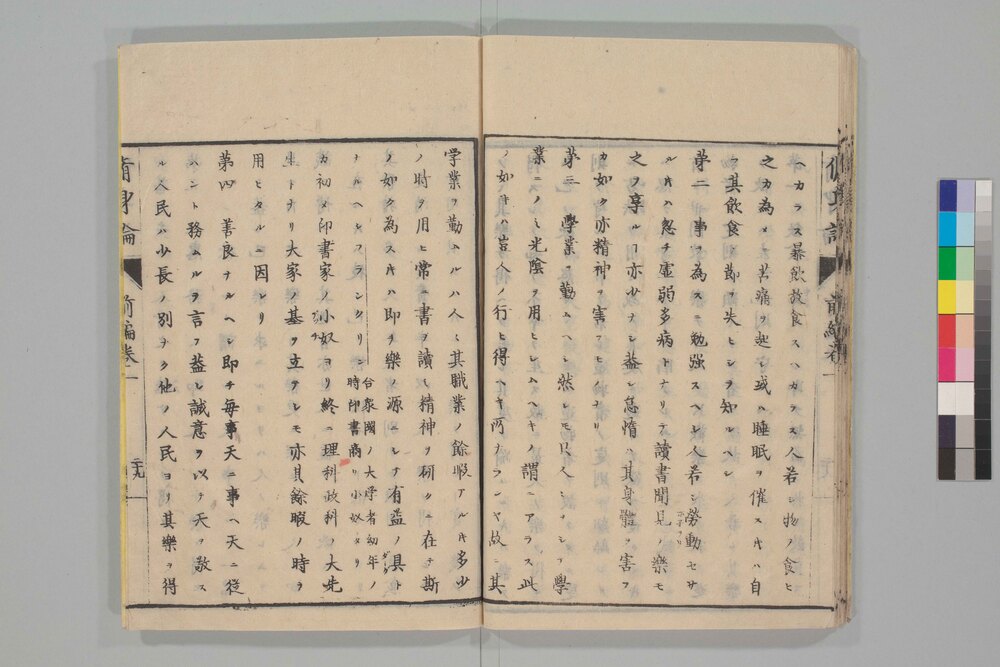 ヘカラス暴飲放食スヘカラス人若シ物ノ食ヒ
之カ為メ苦痛ヲ起シ或ハ睡眠ヲ催スキハ自
ラ其飲食ノ節ヲ失ヒシヲ知ルヘシ
第二 事ヲ為スニ勉強スヘシ人若シ労動セサ
ルキハ忽チ虚弱多病トナリテ讀書聞見ノ樂モ
之ヲ享ル亦少ナシ益シ怠惰ハ其身體ヲ害フ
カ如ク亦精神ヲ害フヒノナリ
第三 學業ヲ勤ムヘシ然レ𪜈只人ニナシテ學
業ニノミ光陰ヲ用ヒシムヘキノ謂ニアラス此
ノ如キハ豈人ノ行ヒ得ヘキ所ナランヤ故ニ其
學業ヲ勤ムルハ人々其職業ノ餘暇アルキ多少
ノ時ヲ用ヒ常ニ書ヲ讀ミ精神ヲ研クニ在テ斯
ノ如ク為スキハ即チ樂ノ源ニシテ有益ノ具ト
ナルヘシフランクリン合衆國ノ大學者幼年ノ時印書商ノ小奴タリ
カ初メ印書家ノ小奴ヨリ終ニ理科政科ノ大先
生トナリ大家ノ基ヲ立テシモ亦其餘暇ノ時ヲ
用ヒタルニ因レリ
第四 善良ナルヘシ即チ毎事天ニ事ヘ天ニ従
ハント務ムルヲ言フ益シ誠意ヲ以テ天ヲ敬ス
ル人民ハ少長ノ別ナク他ノ人民ヨリ其樂ヲ得
脩身論 前編巻一 二十九